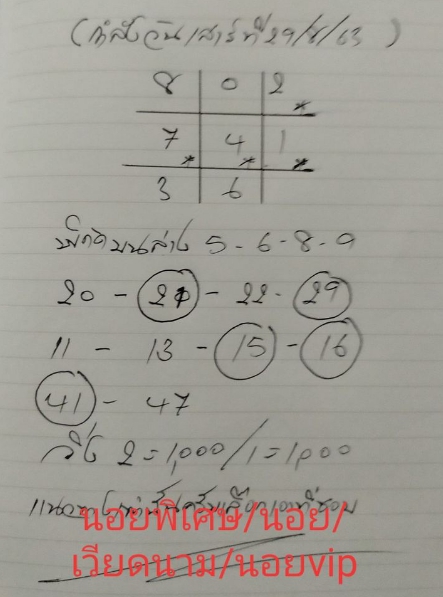 (กำลังวันเสาร์ที่ 29/8/63)
8 0 2
7 4 1
3 6
พิกัดบนล่าง 5-6-8-9
20 - 21 - 22 - 29
11 - 13 - 15 - 16
41 - 47
วิ่ง 2=1,000/1=1,000
นอยพิเศษ/นอย/
เวียดนาม/นอยvip